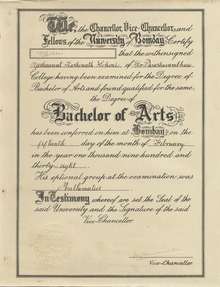 We, the Chancellor, Vice-Chancellor, and
Fellows of the University of Bombay Certify
that the undersigned
College having been examined for the Degree of
Bachelor of Arts and found qualified for the same,
the Degree of
Bachelor of Arts
has been conferred on him at Bombay on the
fifteenth day of the month of February
in the year one thousand nine hundred and
thirty eight.
His optional group at the examination was
Mathematics
In Testimony whereof are set the Seal of the
said University and the Signature of the said
Vice-Chancellor.
Vice-Chancellor